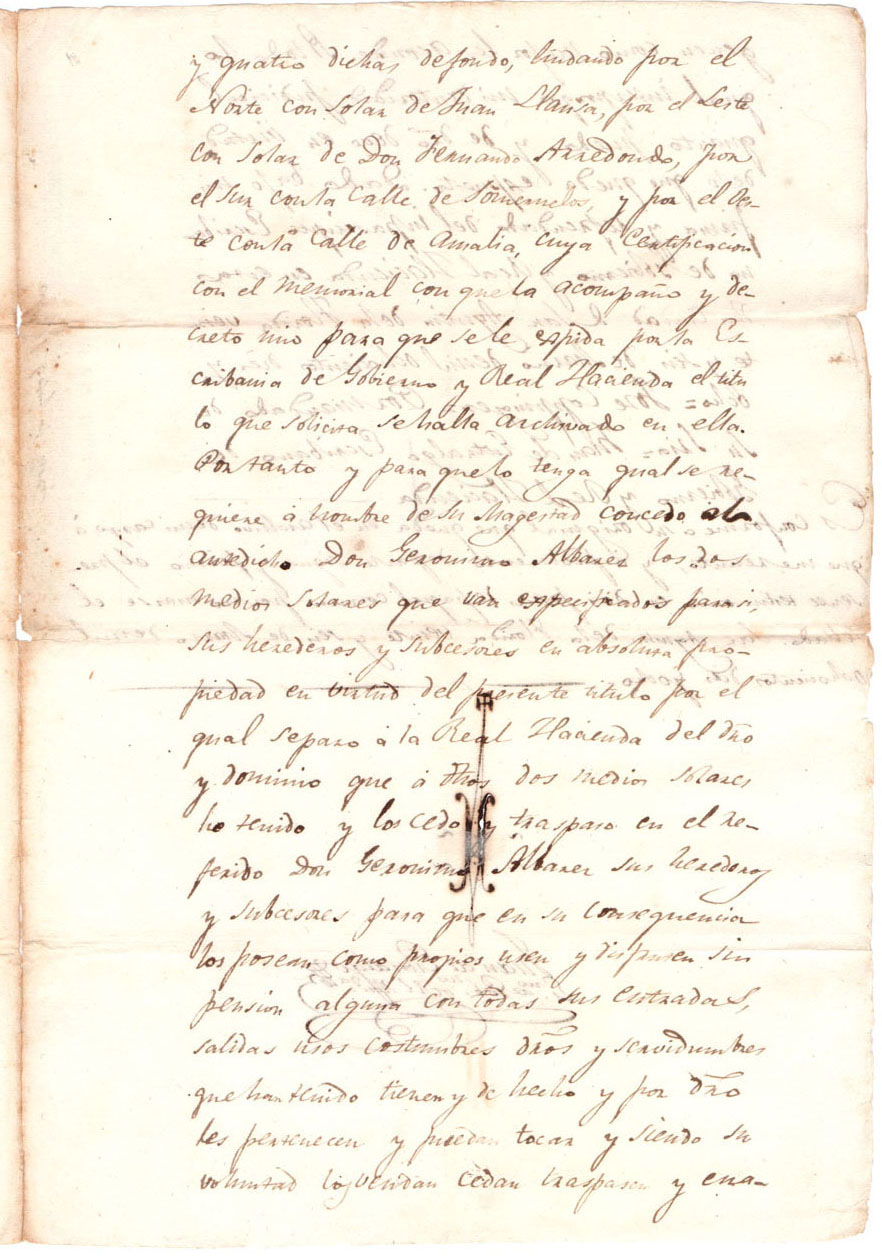 y quatro dichas defondo, lindando por el
Norte con solar de Juan Llansa, por el Leste
con solar de Don Fernando Arredondo, por
el sur con la Calle de Someruelos, y por el Oes-
te con la Calle de Amalia, cuya Certificacion
con el memorial con que la acompaño y de-
creto mio para que se le expida por la Es-
cribania de Gobierno y Real Hacienda el titu
lo que solicita se halla archivado en ella.
Por tanto y para que lo tenga qual se re-
quiere á nombre de Su Magestad concedo al
antedicho Don Geronimo Albarez los dos
medios solares que van expecificados para si,
sus herederos y subcesores en absoluta pro-
piedad en virtud del presente titulo por el
qual separo á la Real Hacienda del dr̃o
y dominio que á dh̃os dos medios solares
ha tenido y los cedo y traspaso en el re-
ferido Don Geronimo Albarez sus herederos
y subcesores para que en su consequencia
los posean como propios usen y disfruten sin
pension alguna con todas sus entradas,
salidas usos costumbres dr̃os y servidumbres
que han tenido tienen y de hecho y por dr̃o
les pertenecen y puedan tocar y siendo su
voluntad los vendan cedan traspasen y ena-